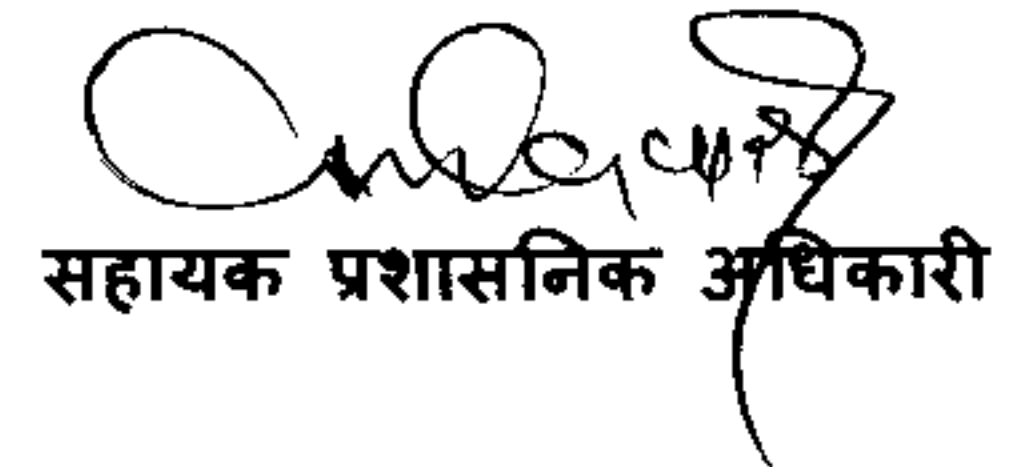 सहायक प्रशासनिक अधिकारी